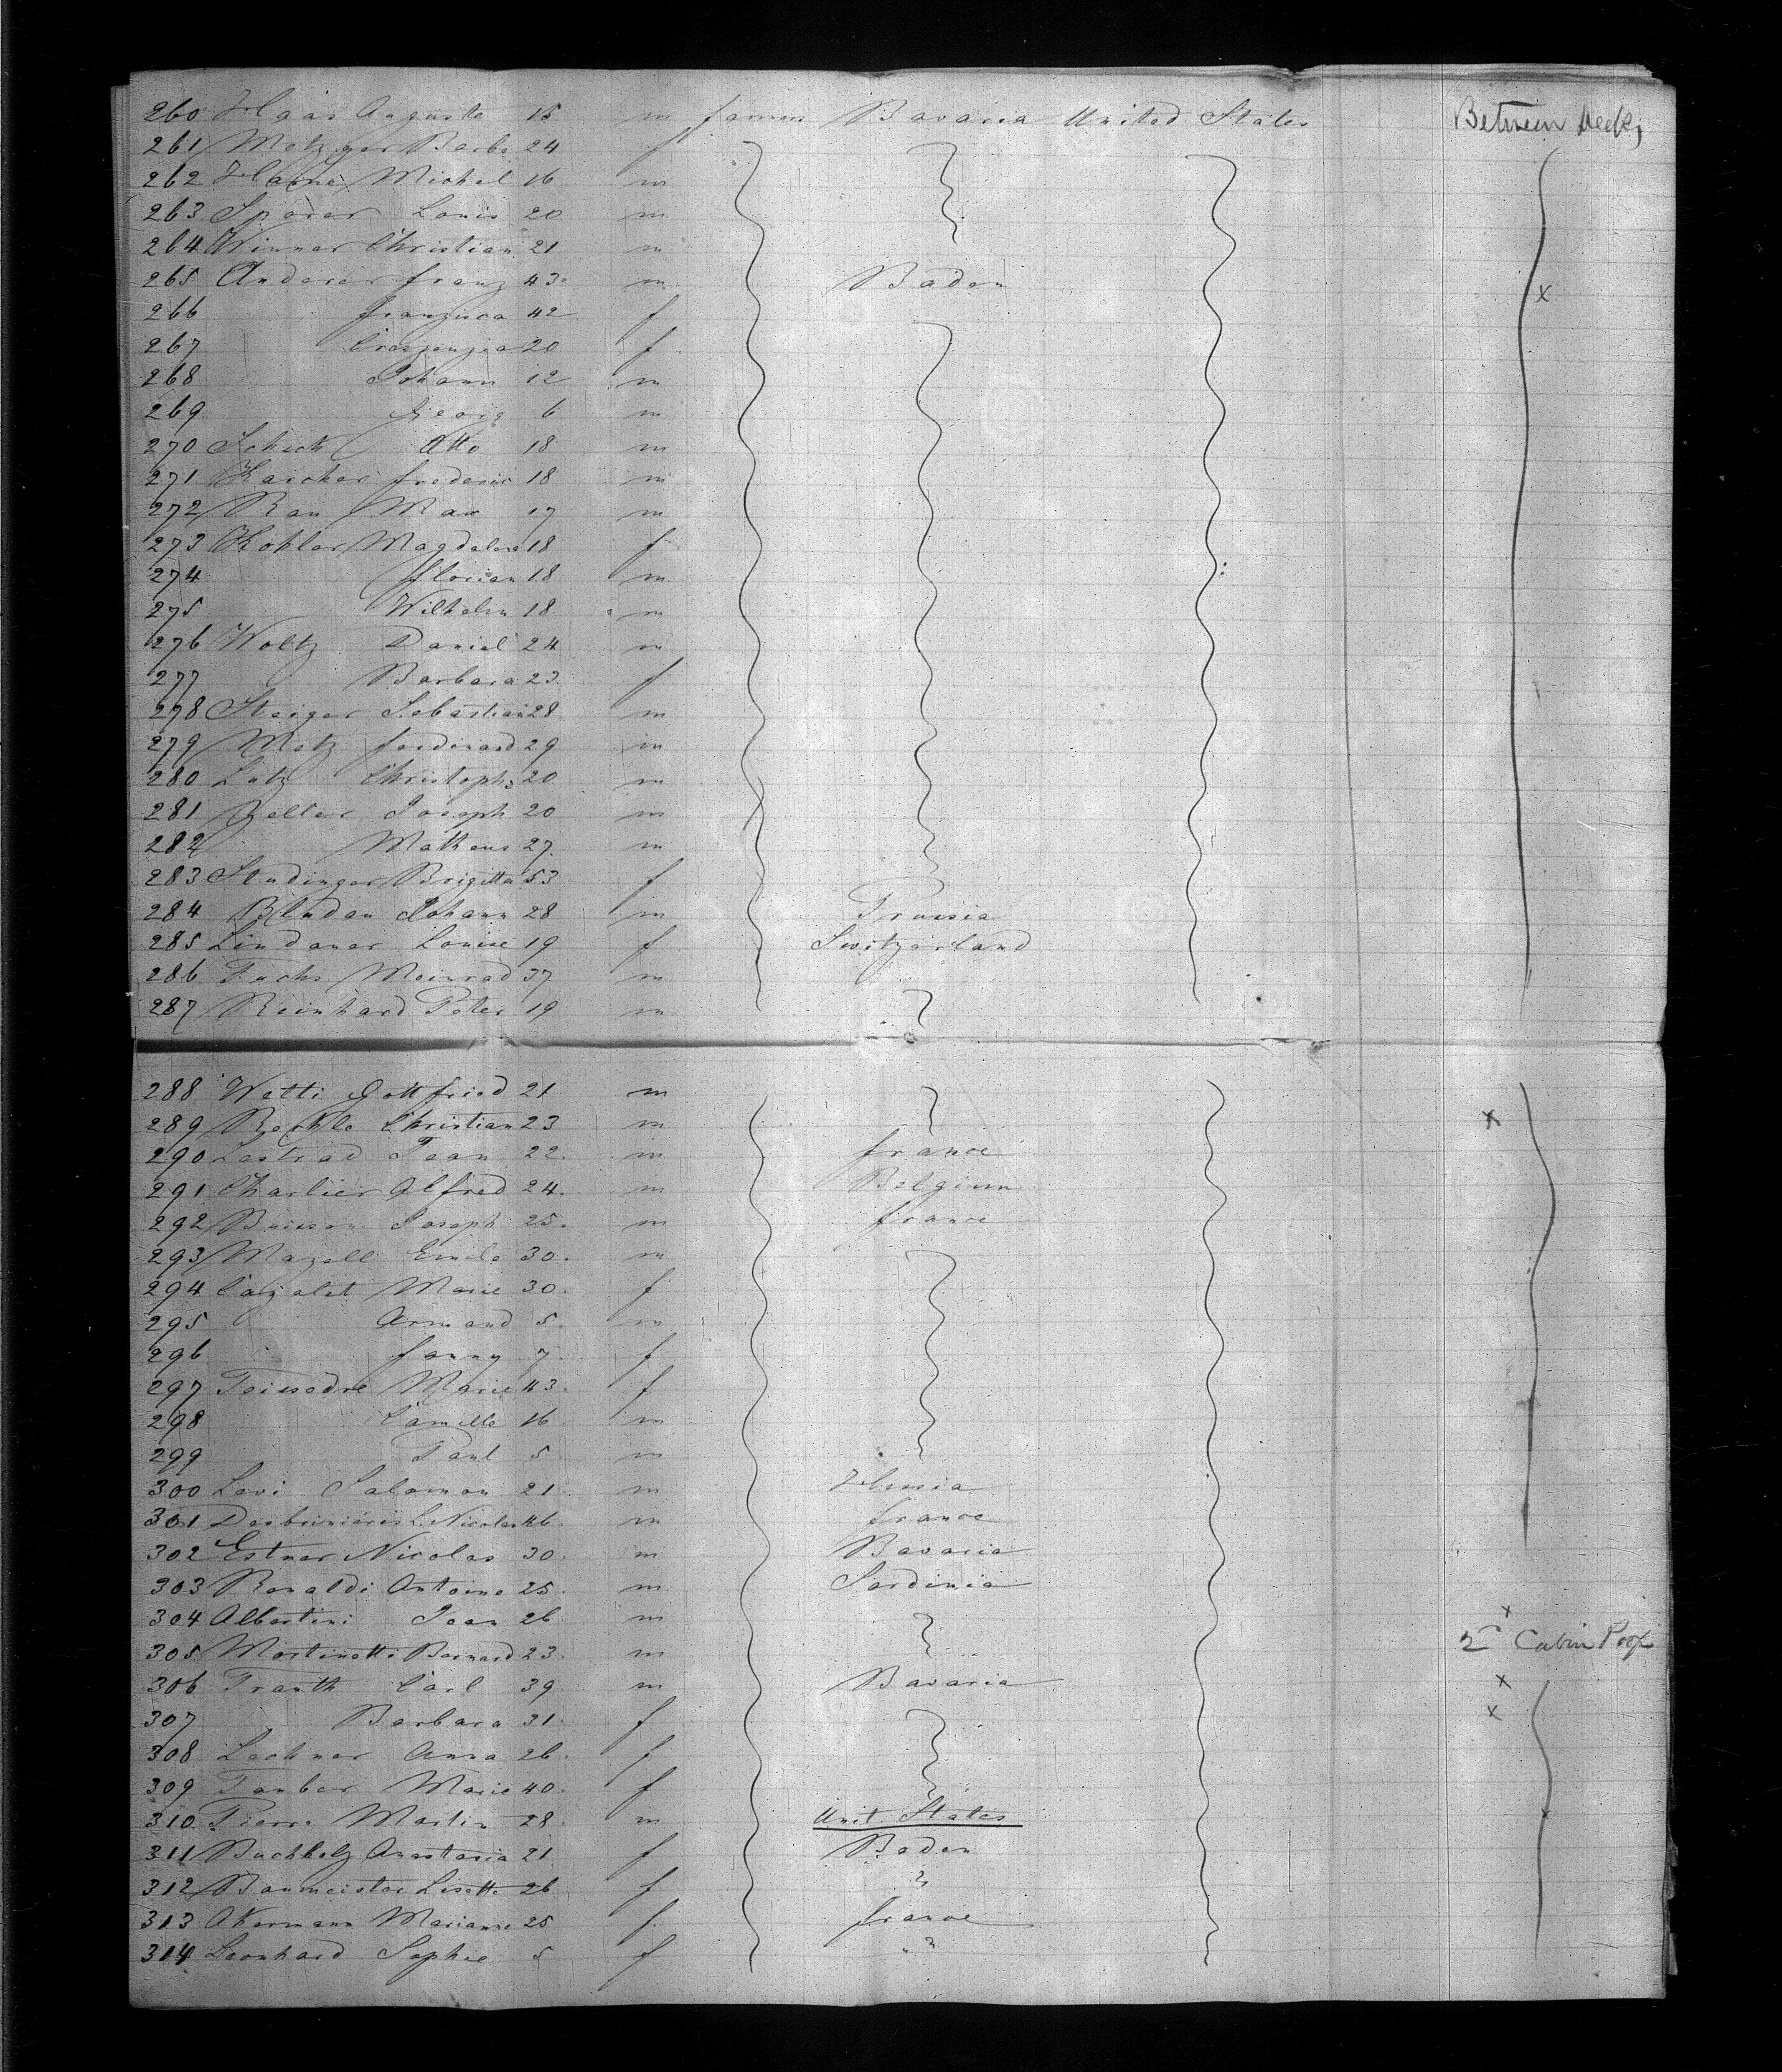 260 Haas Auguste 15 m farmers Bavaria United States Between Decks
261 Metzger Barbe 24 f
262 Haine Michel 16 m
263 Sporer Louis 20 m
264 Winner Christian 21 m
265 Anderer franz 43 m Baden x
266 franzisca 42 f
267 Creszenzia 20 f
268 Johann 12 m
269 Georg 6 m
270 Schick Otto 18 m
271 Karcher frederic 18 m
272 Rau Max 17 m
273 Kohler Magdalena 18 f
274 florian 18 m
275 Wilhelm 18 m
276 Woltz Daniel 24 m
277 Barbara 23 f
278 Steiger Sebastian 28 m
279 Metz ferdinand 29 m
280 Lutz Christophe 20 m
281 Zeller Joseph 20 m
282 Matheus 27 m
283 Studinger Brigitta 53 f
284 Bluden Johann 28 m Prussia
285 Lindauer Louise 19 f Switzerland
286 Fuchs Meinrad 37 m
287 Reinhard Peter 19 m
288 Wetti Gottfried 21 m
289 Christian 23 m x
290 Lestrad Jean 22 m france
291 Charlier Alfred 24 m Belgium
292 Buisson Joseph 25 m france
293 Mazell Emile 30 m
294 Cazalet Marie 30 f
295 Armand 5 m
296 fanny 7 f
297 Teissedre Marie 43 f
298 Camille 16 m
299 Paul 5 m
300 Levi Salomon 21 m Hessia
301 L. Nicolas 46 m france
302 Estner Nicolas 30 m Bavaria
303 Ronaldi Antoine 25 m Sardinia
304 Albertini Jean 26 m x
305 Martinetti Bernard 23 m 2 Cabin Poop
306 Trauth Carl 39 m Bavaria x
307 Barbara 31 f x
308 Lechner Anna 26 f
309 Tauber Marie 40 f
310 Pierre Martin 28 m Unit States x
311 Buchholz Anastasia 21 f Baden
312 Baumeister Lisette 26 f "
313 Akermann Marianne 25 f france
314 Leonhard Sophie 5 f "